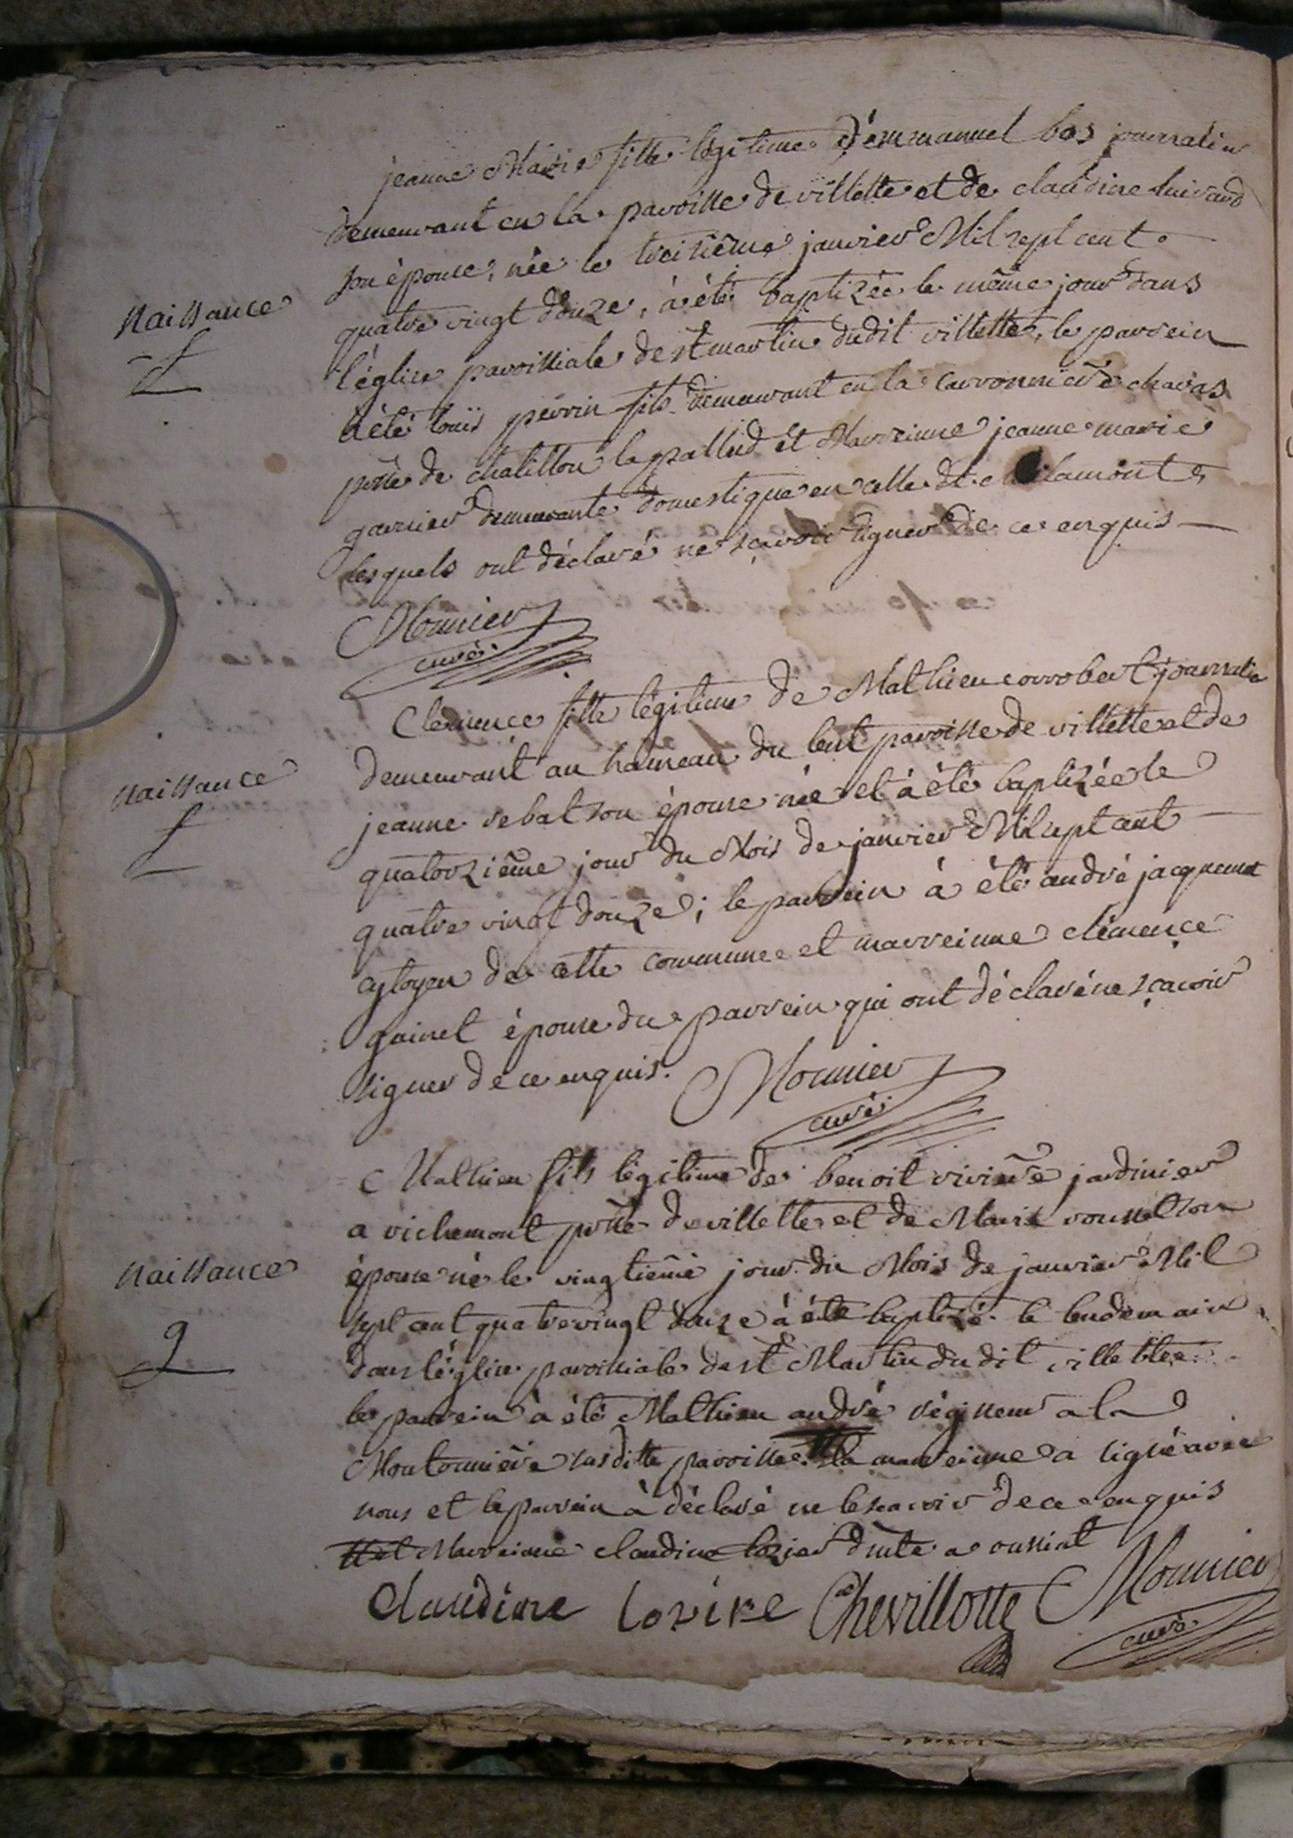 jeanne Marie fille légitime d'emmanuel bos journalier
demeurant en la paroisse de villette et de claudine
son épouse, née le treizième janvier Mil sept cent
Naissance
quatre vingt douze, à été baptizée le même jour dans
f
l'églize paroissiale de st martin dudit villette, le parrein
à été loüis perrin fils demeurant en la carronnière
psse de chatillon lapallud et Marreinne jeanne marie
garnier demeurante domestique en celle de
lesquels ont déclaré ne sçavoir signer de ce enquis
Monnier
curé.
Clemence fille légitime de Mathieu corrobert journalier
demeurant au hameau du paroisse de villette et de
Naissance
jeanne sebat son épouse née et à été baptizée le
f
quatorzième jour du Mois de janvier Mil sept cent
quatre vingt douze; le parrein à été andré jacquemet
cytoyen de cette commune et marreinne clémence
guinet épouse du parrein qui ont déclaré ne sçavoir
signer de ce enquis. Monnier
curé.
Mathieu fils légitime de benoit jardinier
a richemont psse de villette et de Marie rousset son
Naissance
épouse né le vingtième jour du Mois de janvier Mil
sept cent quatre vingt douze à été baptizé le lendemain
g
dans l'églize paroissiale de st Martin dudit villette
le parrein à été Mathieu andré régisseur a la
Moutonnière susditte paroisse. la marreinne a signé avec
nous et le parrein à déclaré ne le scavoir de ce enquis
et Marreinne claudine lozier ditte a oussiat
Claudine Lovire Chevillotte Monnier
curé.